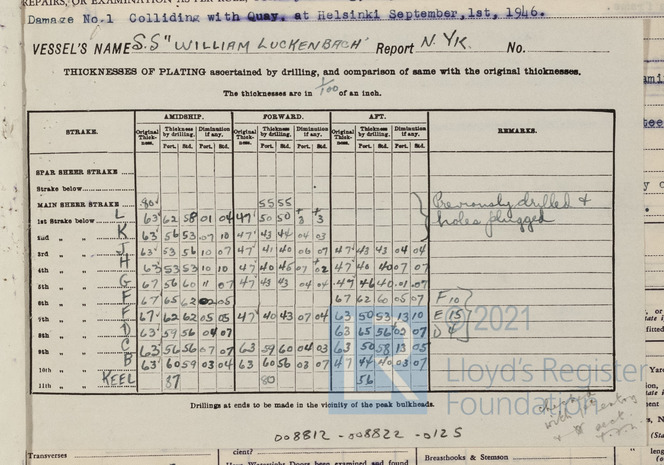 REPAIRS, OR EXAMINATION AS PER RULE,
Damage No.1 Colliding with Quay, at Helsinki September,1st, 1946.
VESSEL'S NAME S.S "WILLIAM LUCKENBACH" Report N. YK. No.
THICKNESSES OF PLATING ascertained by drilling, and comparison of same with the original thicknesses.
The thicknesses are in 1/100 of an inch.
STRAKE. AMIDSHIP. FORWARD. AFT. REMARKS.
Original Thickness. Thickness by drilling. Diminution if any. Original Thickness. Thickness by drilling. Diminution if any. Original Thickness. Thickness by drilling. Diminution if any.
Port. Std. Port. Std. Port. Std. Port. Std. Port. Std. Port. Std.
SPAR SHEER STRAKE
Strake below
MAIN SHEER STRAKE 80 55 55 Previously drilled &
L 1st Strake below 63 62 58 01 04 47 50 50 +3 +3 holes plugged
K 2nd " " 63 56 53 07 10 47 43 44 04 03
J 3rd " " 63 53 56 10 07 47 41 40 06 07 47 43 43 04 04
H 4th " " 63 53 53 10 10 47 40 45 07 02 47 40 40 07 07
G 5th " " 67 56 60 11 07 47 43 43 04 04 47 46 40 01 07
F 6th " " 67 65 62 02 05 67 62 60 05 07 F 10
E 7th " " 67 62 62 05 05 47 40 43 07 04 63 50 53 13 10 E (15)
D 8th " " 63 59 56 04 07 63 65 56 +02 07 D 4
C 9th " " 63 56 56 07 07 63 59 60 04 03 63 50 58 13 05
B 10th " " 63 60 59 03 04 63 60 56 03 07 47 44 40 03 07
11th " " KEEL 87 80 56
Drillings at ends to be made in the vicinity of the peak bulkheads.
008812 - 008822 - 0125
© 2021
Lloyd's Register
Foundation
Transverses
cient?
Have Watertight Doors been examined and found
Breasthooks & Stemson